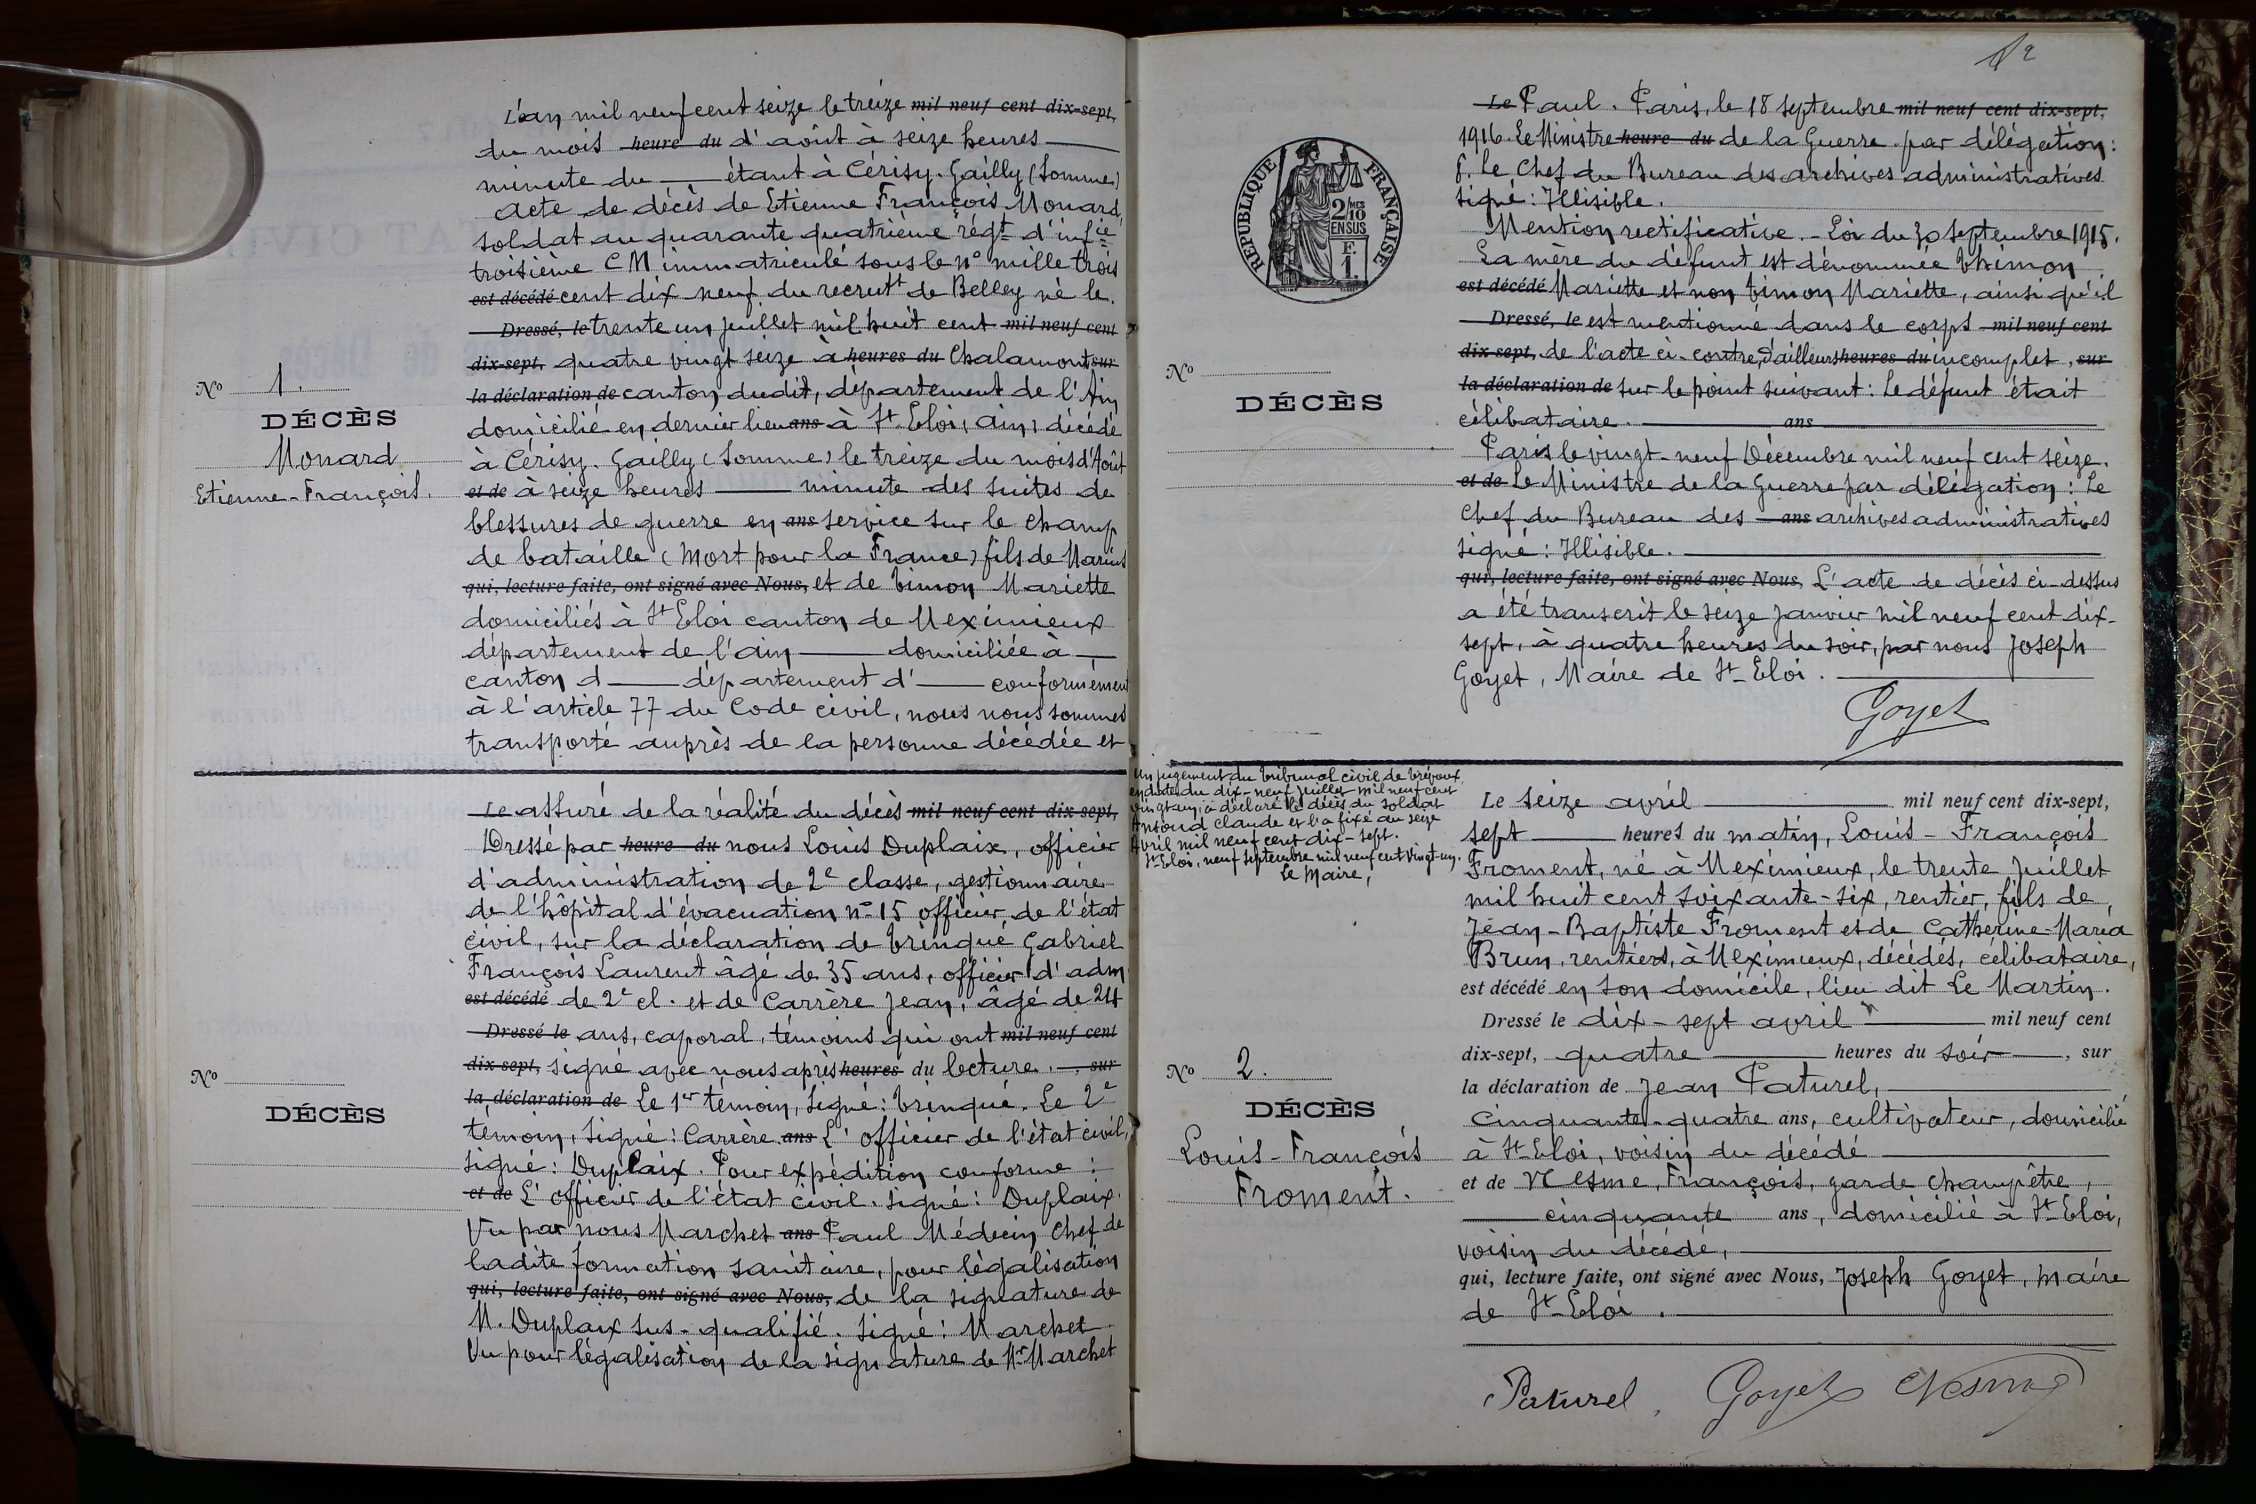 N° 1.
DÉCÈS
Monard
Etienne-François.
L'an mil neuf cent seize le treize mil neuf cent dix-sept,
du mois heure du d'août à seize heures
minute du étant à Cérisy-Gailly (Somme)
acte de décès de Etienne François Monard,
soldat au quarante quatrième régt d'infie
troisième CM immatriculé sous le n° mille trois
est décédé cent dix neuf du recrutt de Belley né le
Dressé, le trente un juillet mil huit cent mil neuf cent
dix-sept, quatre vingt seize à heures du Chalamont sur
la déclaration de canton dudit, département de l'Ain
domicilié en dernier lieu ans à St Eloi, Ain, décédé
à Cérisy-Gailly (Somme) le treize du mois d'Août
et de à seize heures minute des suites de
blessures de guerre en ans service sur le champ
de bataille (Mort pour la France) fils de Marius
qui, lecture faite, ont signé avec Nous, et de Timon Mariette
domiciliés à St Eloi canton de Meximieux
département de l'ain domiciliée à
canton d département d' conformement
à l'article 77 du Code civil, nous nous sommes
transporté auprès de la personne décédée et
N°
DÉCÈS
Le assuré de la réalité du décès mil neuf cent dix-sept,
Dressé par heure du nous Louis Duplaix, officier
d'administration de 2e classe, gestionnaire
de l'hôpital d'évacuation n° 15 officier de l'état
civil, sur la déclaration de Trinqué Gabriel
François Laurent âgé de 35 ans, officier d'adm
est décédé de 2e cl. et de Carrère Jean, âgé de 24
Dressé le ans, caporal, témoins qui ont mil neuf cent
dix-sept, signé avec nous après heures du lecture. , sur
la déclaration de Le 1er témoin, signé: Trinqué. Le 2e
témoin, signé: Carrère ans L'officier de l'état civil,
signé: Duplaix. Pour expédition conforme:
et de L'officier de l'état civil. signé: Duplaix.
Vu par nous Marchet ans Paul Médecin Chef de
ladite formation sanitaire, pour légalisation
qui, lecture faite, ont signé avec Nous, de la signature de
M. Duplaix sus-qualifié. Signé: Marchet
Vu pour légalisation de la signature de Mr Marchet
RÉPUBLIQUE FRANÇAISE
2/10 MES
EN SUS
F.
1.
N°
DÉCÈS
Le Paul. Paris, le 18 septembre mil neuf cent dix-sept,
1916. Le Ministre heure du de la Guerre par délégation:
P. le Chef du Bureau des archives administratives
signé: Illisible.
Mention rectificative. - Loi du 30 septembre 1915.
La mère du défunt est dénommée Thimon
est décédé Mariette et non Timon Mariette, ainsi qu'il
Dressé, le est mentionné dans le corps mil neuf cent
dix-sept, de l'acte ci-contre, d'ailleurs heures du incomplet, sur
la déclaration de sur le point suivant: Le défunt était
célibataire. ans
Paris le vingt-neuf Décembre mil neuf cent seize.
et de Le Ministre de la Guerre par délégation: Le
Chef du Bureau des ans archives administratives
signé: Illisible.
qui, lecture faite, ont signé avec Nous, L'acte de décès ci-dessus
a été transcrit le seize janvier mil neuf cent dix-
sept, à quatre heures du soir, par nous Joseph
Goyet, Maire de St-Eloi.
Goyet
Un jugement du Tribunal civil de Trévoux
en date du dix-neuf Juillet mil neuf cent
vingt un, a déclaré le décès du soldat
Claude et l'a fixé au seize
Avril mil neuf cent dix-sept.
St Eloi, neuf septembre mil neuf cent vingt-un.
Le Maire,
N° 2.
DÉCÈS
Louis-François
Froment.
Le seize avril mil neuf cent dix-sept,
sept heures du matin, Louis-François
Froment, né à Meximieux, le trente Juillet
mil huit cent soixante-six, rentier, fils de
Jean-Baptiste Froment et de Catherine-Maria
Brun, rentiers, à Meximieux, décédés, célibataire,
est décédé en son domicile, lieu dit Le Martin.
Dressé le dix-sept avril mil neuf cent
dix-sept, quatre heures du soir , sur
la déclaration de Jean Paturel,
cinquante-quatre ans, cultivateur, domicilié
à St-Eloi, voisin du décédé
et de Nesme, François, garde champêtre,
cinquante ans, domicilié à St-Eloi,
voisin du décédé,
qui, lecture faite, ont signé avec Nous, Joseph Goyet, maire
de St-Eloi.
Paturel Goyet Nesme